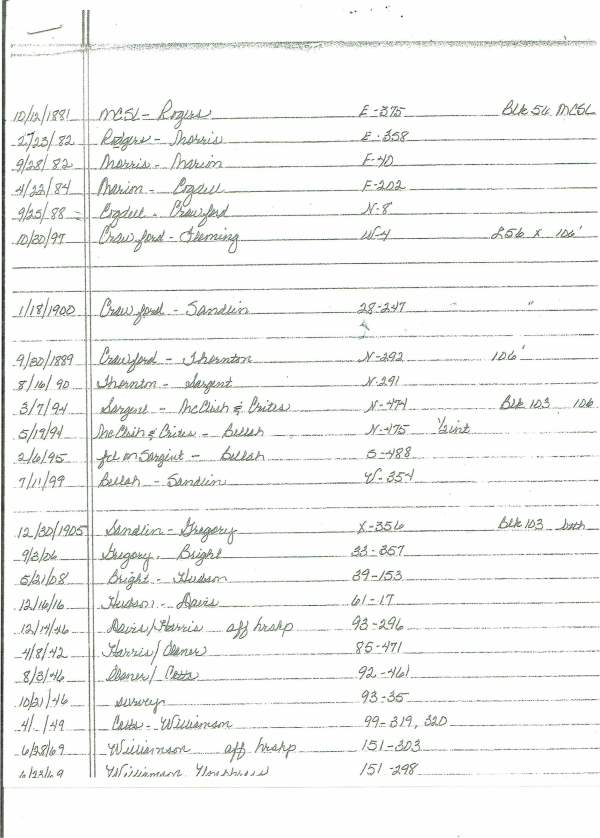 10/12/1881 MCSL - Rogers E-375 Blk 56 MCSL
2/23/82 Rodgers - Morris E-358
9/28/82 Morris - Marion F-40
4/22/84 Marion - Cogdell F-202
9/25/88 Cogdell - Crawford N-8
10/30/97 Crawford - Fleming W-4 256 x 106'
1/18/1900 Crawford - Sandlin 28-247 " "
9/30/1889 Crawford - Thornton N-292 106'
8/16/90 Thornton - Sargent N-291
3/7/94 Sargent - McClish & Crites N-474 Blk 103 106
5/19/94 McClish & Crites - Bellah N-475 1/2 int
2/6/95 Sargint - Bellah S-488
7/11/99 Bellah - Sandlin W-354
12/30/1905 Sandlin - Gregory X-356 Blk 103 both
9/3/06 Gregory - Bright 33-357
5/21/08 Bright - Hudson 39-153
12/16/16 Hudson - Davis 61-17
12/14/46 Davis/Harris aff hrshp 93-296
4/8/42 Harris/ 85-471
8/3/46 92-461
10/21/46 survey 93-35
4/ /49 - Williamson 99-319, 320
6/28/69 Williamson aff hrshp 151-303
6/23/69 Williamson 151-298